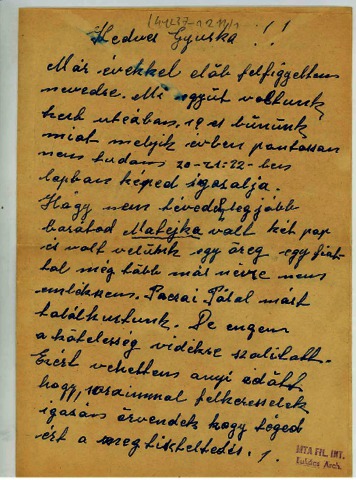 Kedves Gyurka!!
Már évekkel előb felfigyeltem
nevedre. Mi együt voltunk
utcában. 19 es bününk
miat melyik évben pontossan
nem tudom 20-21-22-ben
lapban képed igasolja.
Hogy nem tévedek legjobb
barátod Matejka volt két pap
is volt velünk egy öreg egy fiat-
tal még több más nevre nem
emléksem. Paczai Pálal márt
találkostunk. De engem
a kötelesség vidékre szolitatt.
Ezért vehettem anyi időtt
hogy, soraimmal felkeresselek
igazán örvendek hogy téged
ért a megtiszteltedés. !.
MTA FIL. INT.
Lukács Arch.